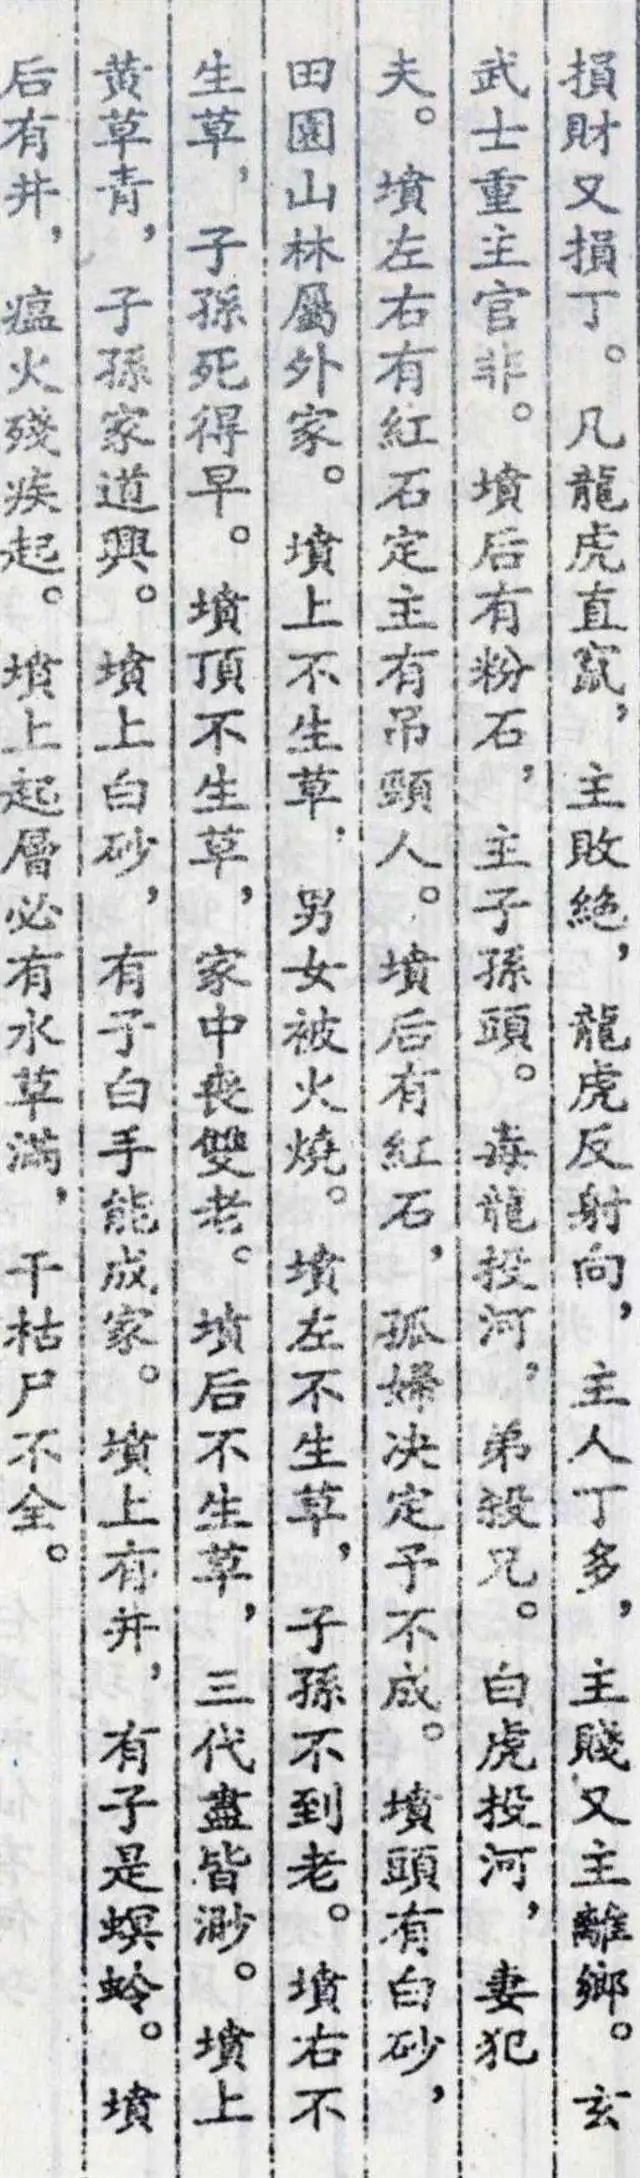 損財又損丁。凡龍虎直竄，主敗絶，龍虎反射向，主人丁多，主賤又主離鄉。玄
武士重主官非。墳后有粉石，主子孫頭。毒龍投河，弟殺兄。白虎投河，妻犯
夫。墳左右有紅石定主有吊頸人。墳后有紅石，孤婦决定予不成。墳頭有白砂，
田園山林屬外家。墳上不生草，男女被火燒。墳左不生草，子孫不到老。墳右不
生草，子孫死得早。墳頂不生草，家中喪雙老。墳后不生草，三代盡皆渺。墳上
黄草青，子孫家道興。墳上白砂，有子白手能成家。墳上有井，有子是螟蛉。墳
后有井，瘟火殘疾起。墳上起層必有水草滿，干枯尸不全。